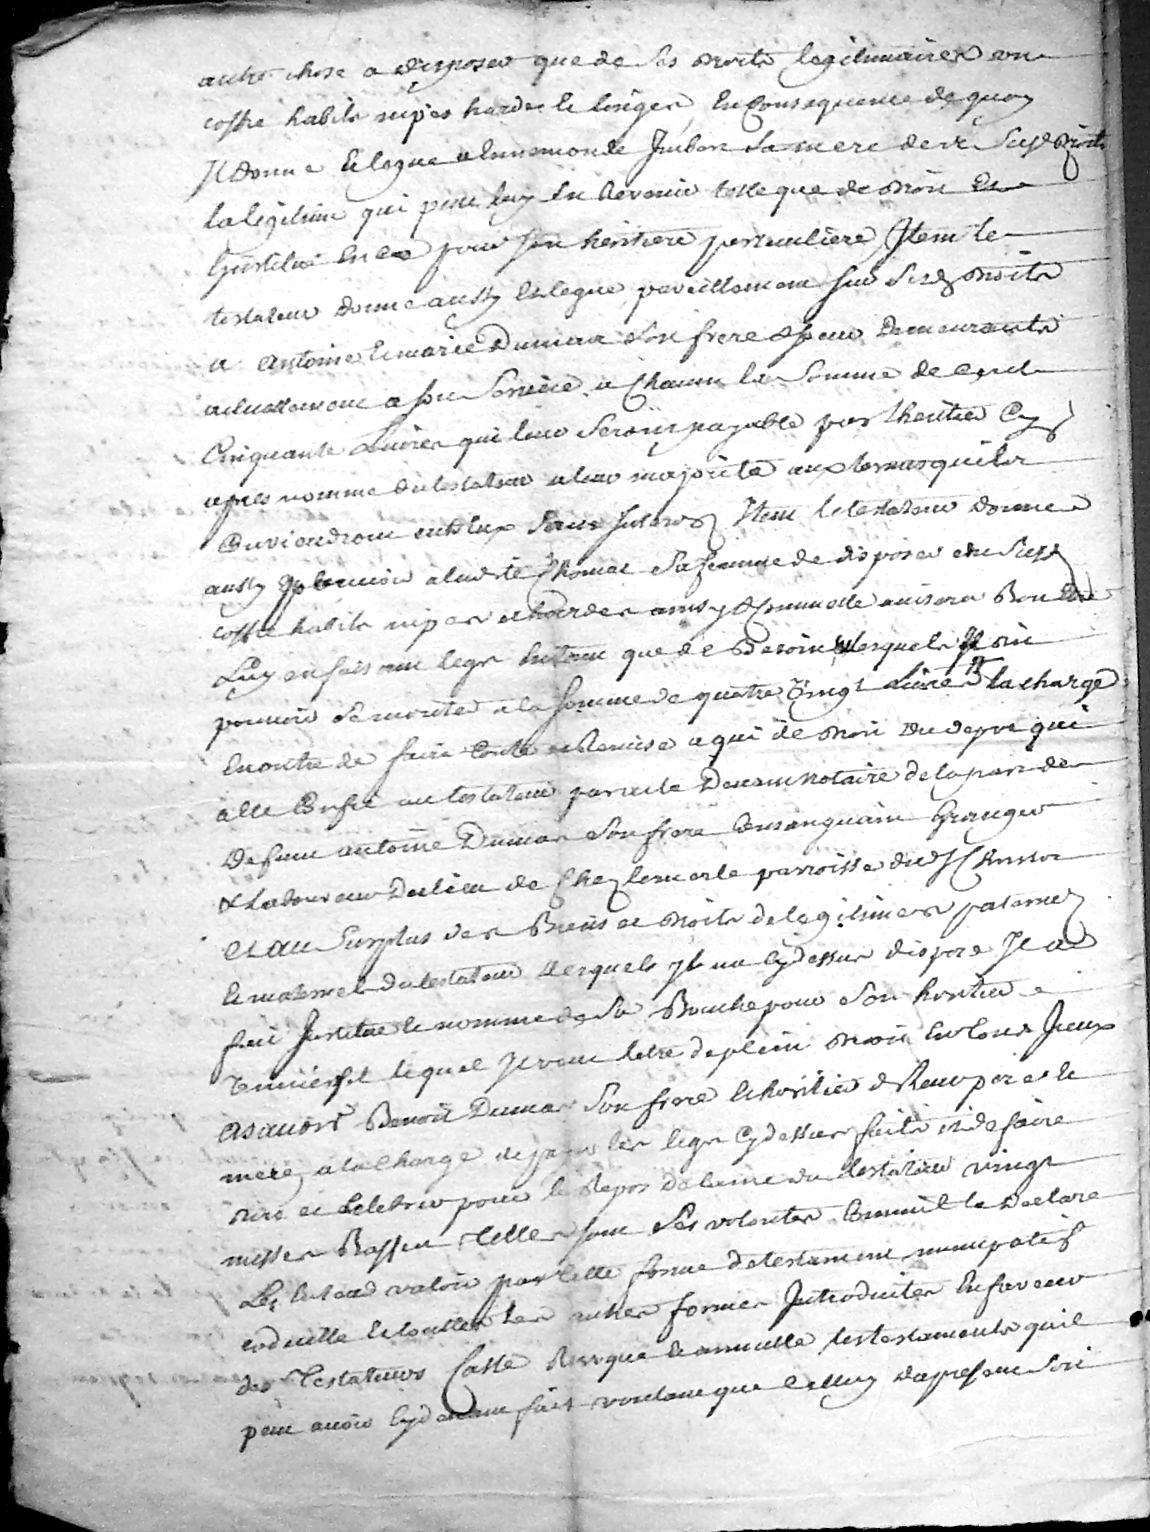 autre chose a disposer que de ses droits legitimaires un
coffre habits nipes hardes et linges, En Consequence de quoy
Il donne et legue a ennemonde Imbert sa mere de ses susd droits
la legitime qui peut luy En Revenir telle que de droit Et
Institue En ce pour son heritiere particuliere Item le
testateur donne aussy et legue pareillement sur sesd droits
a antoine et marie Dumas son frere & soeur Demeurants
actuellement a son service a Chacun la somme de Cent
Cinquante Livres qui leur seront payable par lheritier Cy
apres nomme du testateur a leur majorite aux termes quils
Conviendront entre Eux sans Interest Item le testateur donne
aussy pouvoir a thomas sa femme de disposer du susd
coffre habits nipes et hardes ainsy & Comme elle avisera Bon Etre
Luy en fait un legs En tant que de Besoin lesquels
pouvoir se monter a la somme de quatre vingt Livres a la charge
En outre de faire Conte et Remise a qui de droit du depot qui
a ete Confie au testateur par acte Devant notaire de la part de
Defunt antoine Dumas son frere Consanguin Granger
& Laboureur du lieu de Chez lemerle parroisse dud
et au surplus des Biens et droits de legitimes paternel
et maternel du testateur desquels Il na Cy dessus dispose Il a
fait Institue et nomme de sa Bouche pour son heritier
universel lequel Il veut letre de plein droit En tous Iceux
asavoir Benoit Dumas son frere et heritier de leurs pere et
mere, a la Charge de payer les legs Cy dessus faits et de faire
dire et Celebrer pour le Repos de lame du testateur vingt
messes Basses telles sont ses volontes Comme Il le Declare
Les Entend valoir par Cette forme de testament nuncupatif
codicille et toutes les autres formes Introduites En faveur
des Testateurs Casse Revoque et annulle les testaments quil
peut avoir Cy devant fait voulant que Celluy dapresent soit